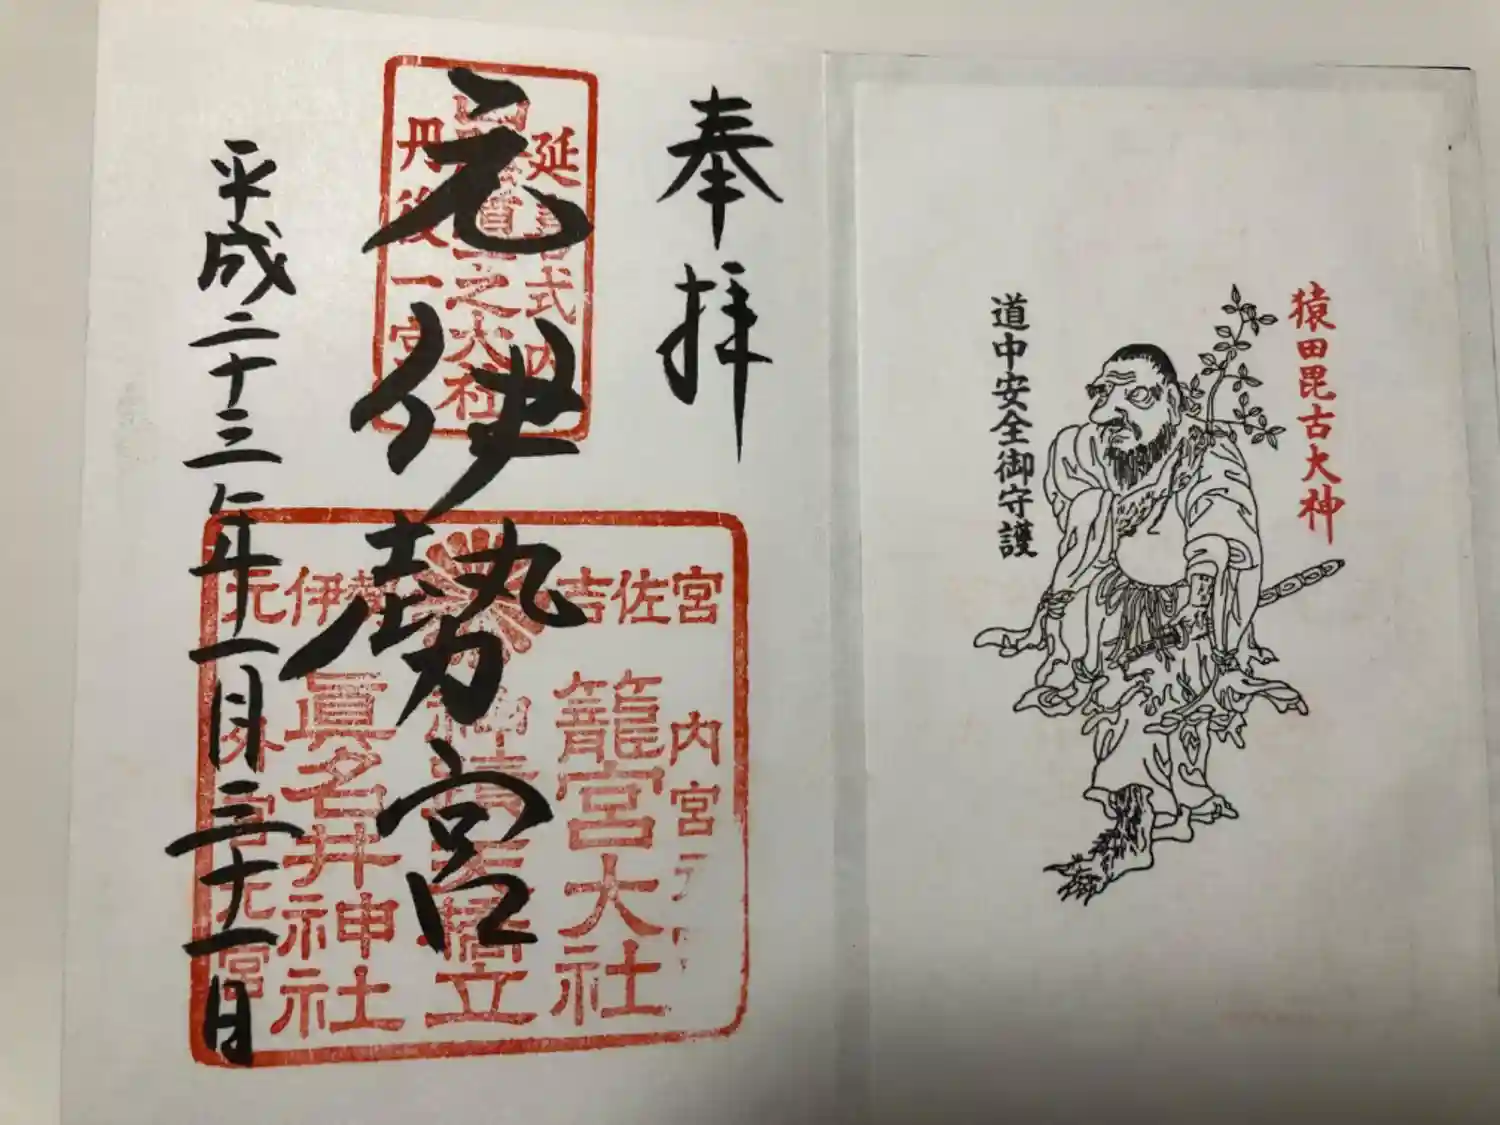 猿田毘古大神
道中安全御守護
奉拝
元伊勢宮
平成二十三年一月三十一日
延喜式内
之大社
丹後一宮
元伊勢 吉佐宮
内宮元宮
籠宮大社
天橋立
眞名井神社
外宮元宮